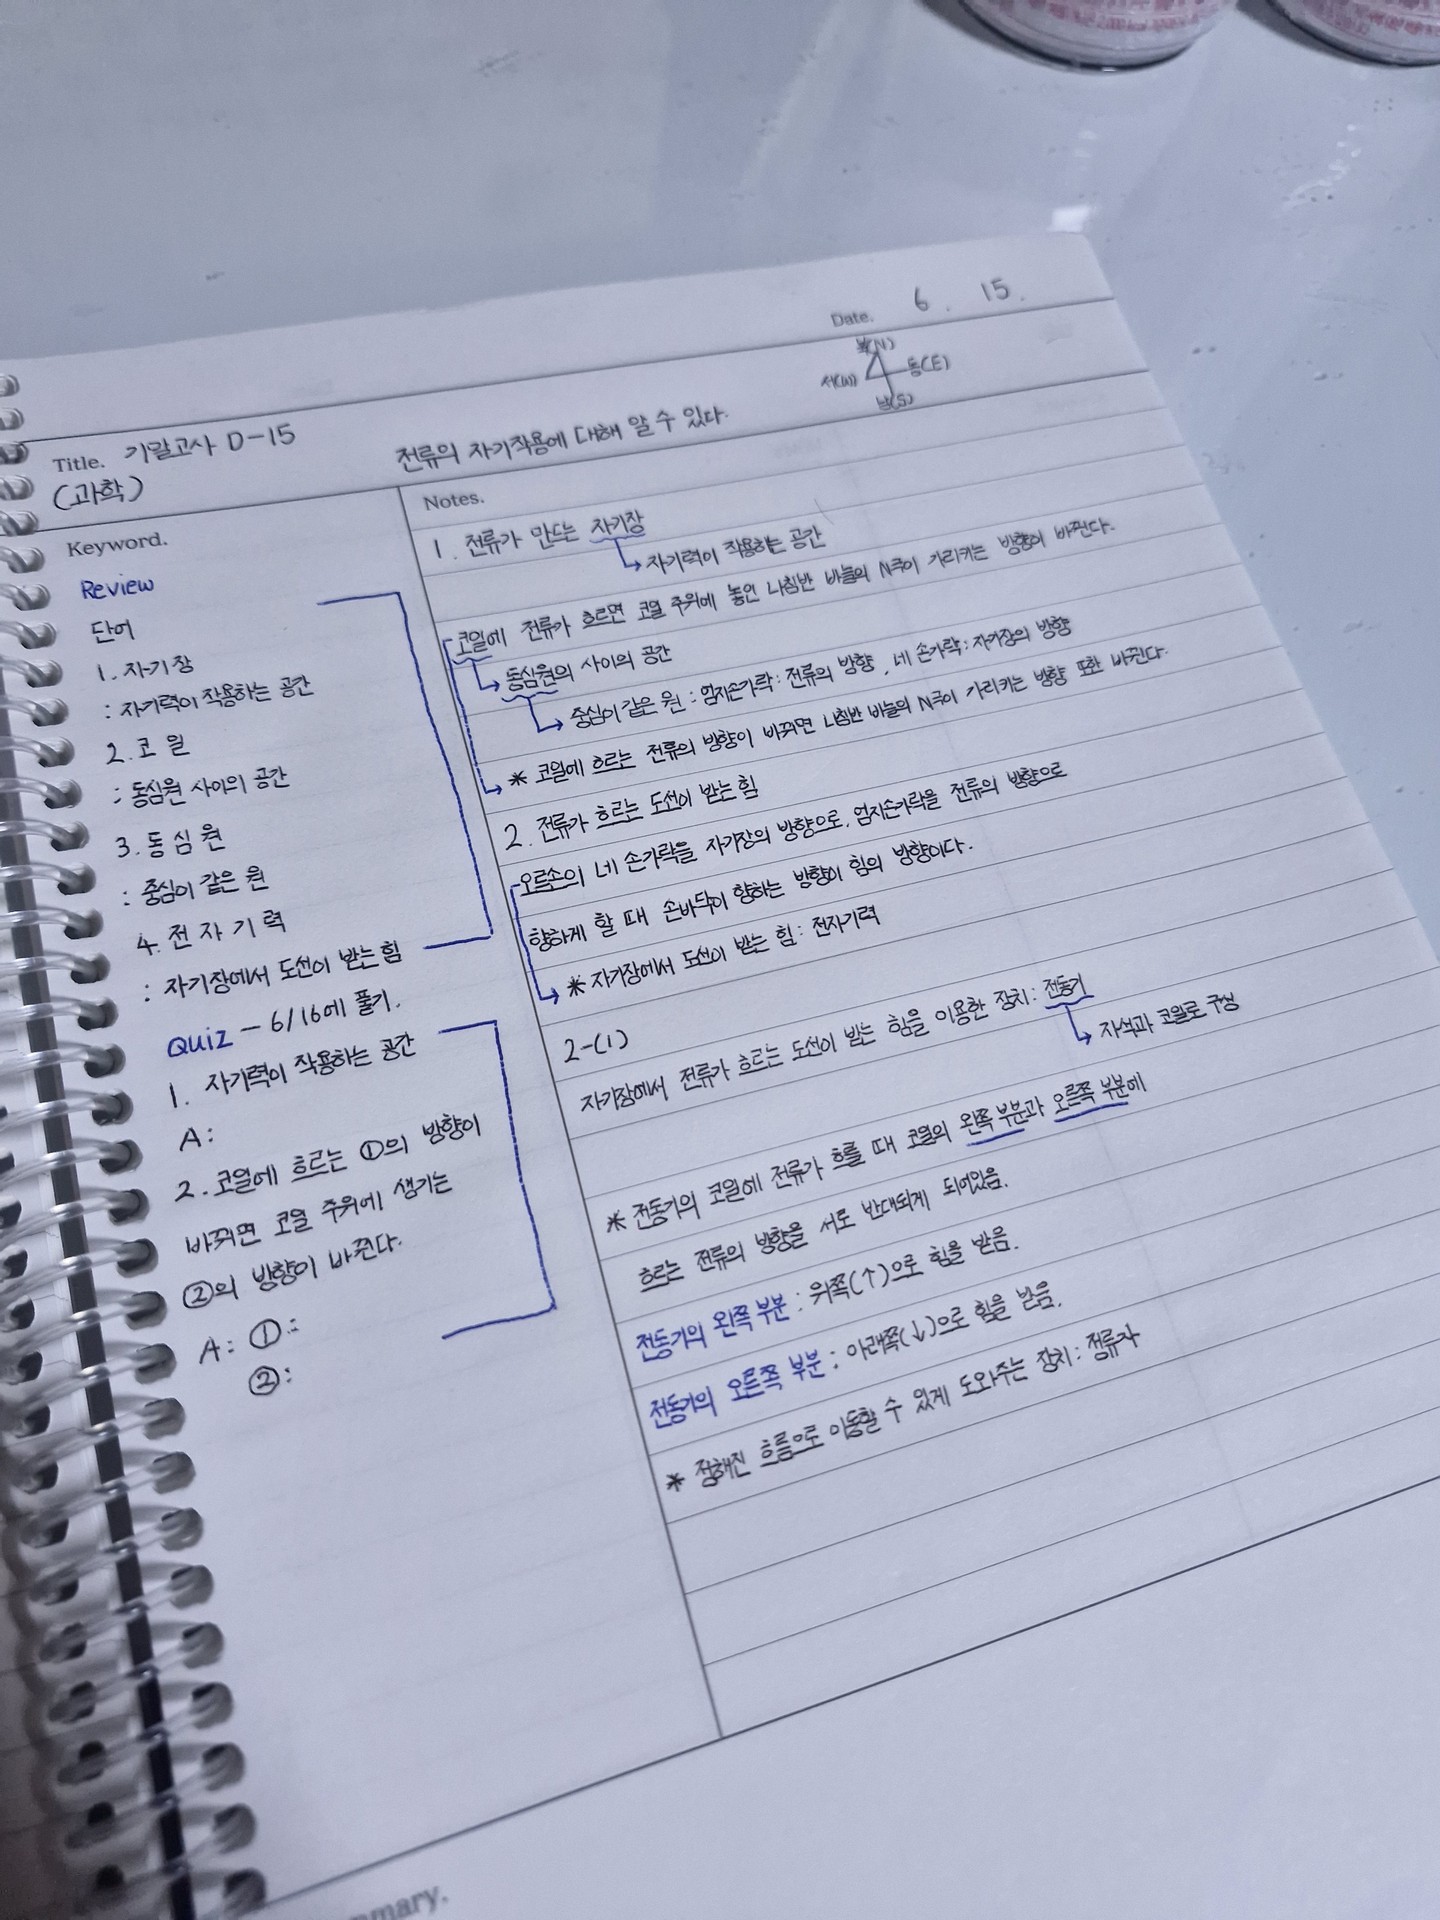 Date. 6 . 15.
북(N)
서(W) 동(E)
남(S)
Title. 기말고사 D-15
(과학)
전류의 자기작용에 대해 알 수 있다.
Keyword.
Review
단어
1. 자기장
: 자기력이 작용하는 공간
2. 코일
: 동심원 사이의 공간
3. 동심원
: 중심이 같은 원
4. 전자기력
: 자기장에서 도선이 받는 힘
Quiz - 6/16에 풀기.
1. 자기력이 작용하는 공간
A:
2. 코일에 흐르는 ①의 방향이
바뀌면 코일 주위에 생기는
②의 방향이 바뀐다.
A: ①:
②:
Notes.
1. 전류가 만드는 자기장
자기력이 작용하는 공간
코일에 전류가 흐르면 코일 주위에 놓인 나침반 바늘의 N극이 가리키는 방향이 바뀐다.
동심원의 사이의 공간
중심이 같은 원 : 엄지손가락 : 전류의 방향, 네 손가락 : 자기장의 방향
* 코일에 흐르는 전류의 방향이 바뀌면 나침반 바늘의 N극이 가리키는 방향 또한 바뀐다.
2. 전류가 흐르는 도선이 받는 힘
오른손의 네 손가락을 자기장의 방향으로, 엄지손가락을 전류의 방향으로
향하게 할 때 손바닥이 향하는 방향이 힘의 방향이다.
* 자기장에서 도선이 받는 힘 : 전자기력
2-(1)
자기장에서 전류가 흐르는 도선이 받는 힘을 이용한 장치 : 전동기
자석과 코일로 구성
* 전동기의 코일에 전류가 흐를 때 코일의 왼쪽 부분과 오른쪽 부분에
흐르는 전류의 방향을 서로 반대되게 되어있음.
전동기의 왼쪽 부분 : 위쪽(↑)으로 힘을 받음.
전동기의 오른쪽 부분 : 아래쪽(↓)으로 힘을 받음.
* 정해진 흐름으로 이동할 수 있게 도와주는 장치 : 정류자
mmary.